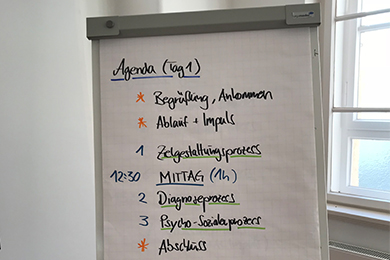 Agenda (Tag 1)
* Begrüßung, Ankommen
* Ablauf + Impuls
1 Zielgestaltungsprozess
12:30 MITTAG (1h)
2 Diagnoseprozess
3 Psycho-Sozialerprozess
* Abschluss